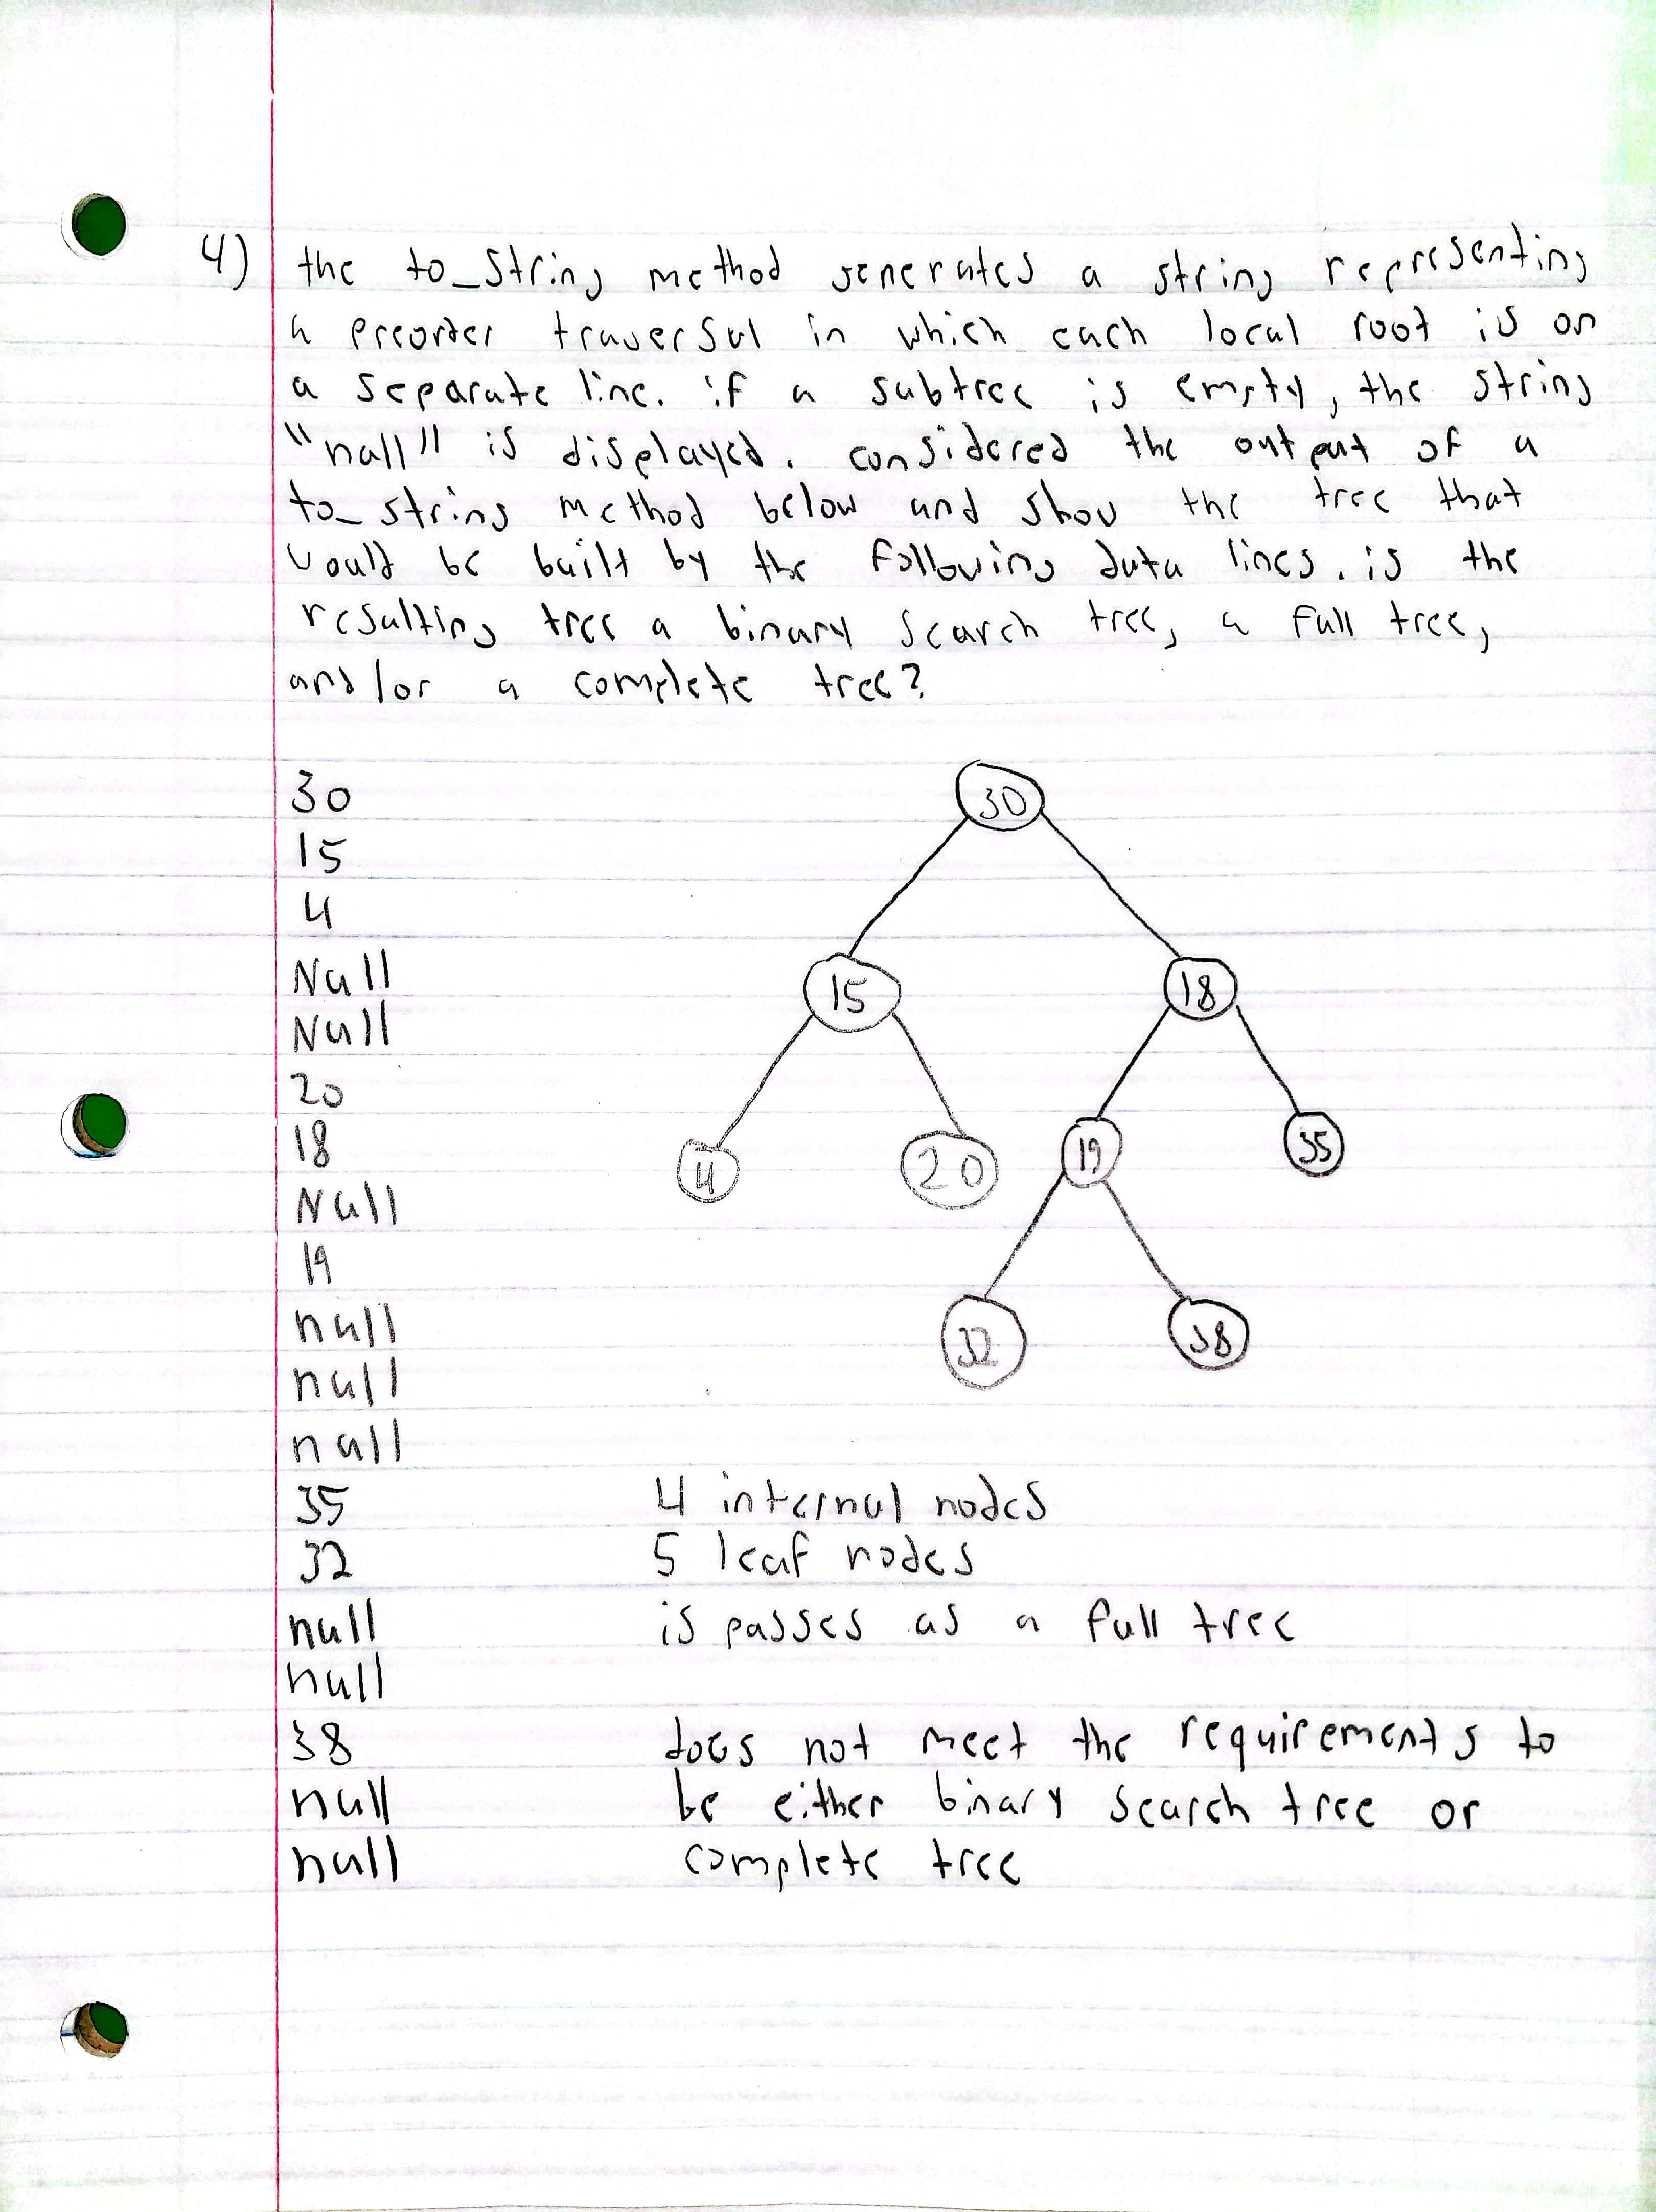 4) the to_string method generates a string representing
a preorder traversal in which each local root is on
a separate line. if a subtree is empty, the string
"null" is displayed. considered the output of a
to_string method below and show the tree that
would be built by the following data lines. is the
resulting tree a binary search tree, a full tree,
and/or a complete tree?
30
15
4
Null
Null
20
18
Null
19
null
null
null
35
32
null
null
38
null
null
30
15 18
4 20 19 35
32 38
4 internal nodes
5 leaf nodes
is passes as a full tree
does not meet the requirements to
be either binary search tree or
complete tree